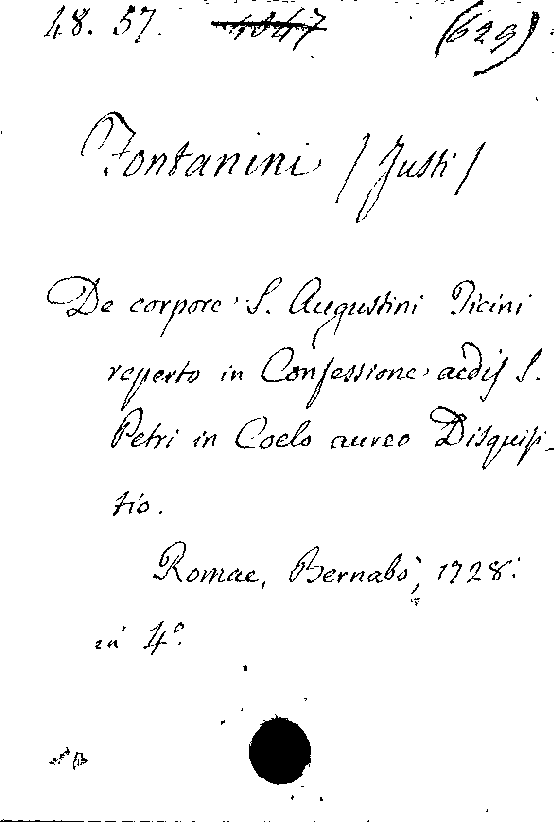 48. 57. 1047 (629)
Fontanini / Justi /
De corpore S. Augustini Ticini
reperto in Confessione aedis S.
Petri in Coelo aureo Disquisi-
tio.
Romae, Bernabò, 1728.
in 4º.